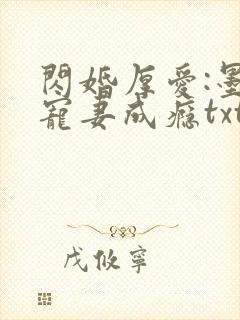 閃婚厚愛:墨
寵妻成瘾txt
戊攸寧